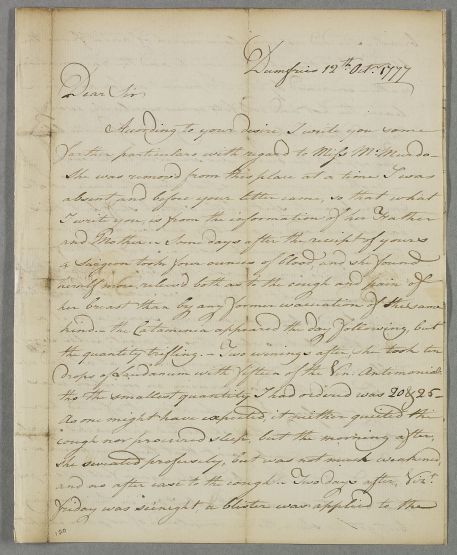 Dumfries 12th Octr. 1777
Dear Sir
According to your desire I write you some
farther particulars with regard to Miss McMurdo –
She was removed from this place at a time I was
absent, and before your letter came, so that what
I write you, is from the information of her Father
and Mother. – Some days after the receipt of yours
a Surgeon took four ounces of blood, and she found
herself more relieved both as to the cough and pain of
her breast than by any former evacuation of the same
kind. – the Catamenia appeared the day following, but
the quantity trifling. – Two evenings after, she took ten
drops of Laudanum with fifteen of the Vin. Antimonial:
tho the smallest quantity I had ordered was 20 & 25 –
As one might have expected, it neither quieted the
cough nor procured sleep, but the morning after,
She sweated profusely, but was not much weakened,
and no after ease to the cough. – Two days after, Vizt.
friday was se'enight, a blister was applied to the